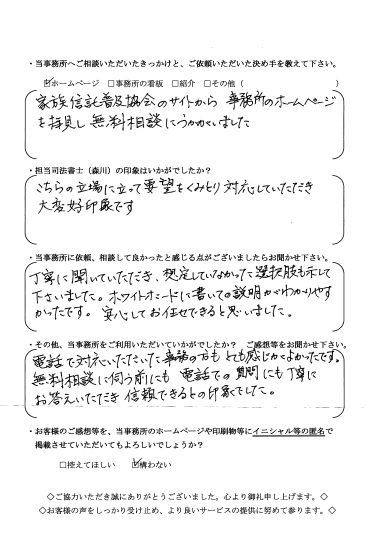 ・当事務所へご相談いただいたきっかけと、ご依頼いただいた決め手を教えて下さい。
☑ホームページ □事務所の看板 □紹介 □その他（ ）
家族信託普及協会のサイトから 事務所のホームページ
を拝見し 無料相談にうかがいました
・担当司法書士（森川）の印象はいかがでしたか？
こちらの立場に立って要望をくみとり対応していただき
大変好印象です
・当事務所に依頼、相談して良かったと感じる点がございましたらお聞かせ下さい。
丁寧に聞いていただき、想定していなかった選択肢も示して
下さいました。ホワイトボードに書いての説明がわかりやす
かったです。安心してお任せできると思いました。
・その他、当事務所をご利用いただいていかがでしたか？ ご感想等をお聞かせ下さい。
電話で対応いただいた事務の方も とても感じがよかったです。
無料相談に伺う前にも 電話での質問にも丁寧に
お答えいただき 信頼できるとの印象でした。
・お客様のご感想等を、当事務所のホームページや印刷物等にイニシャル等の匿名で
掲載させていただいてもよろしいでしょうか？
□控えてほしい ☑構わない
◇ご協力いただき誠にありがとうございました。心より御礼申し上げます。◇
◇お客様の声をしっかり受け止め、より良いサービスの提供に努めて参ります。◇